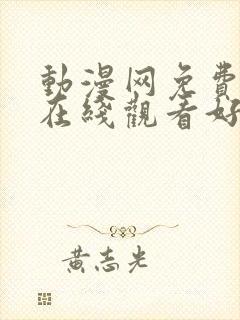 動漫网免費
在綫觀看好
黃志光